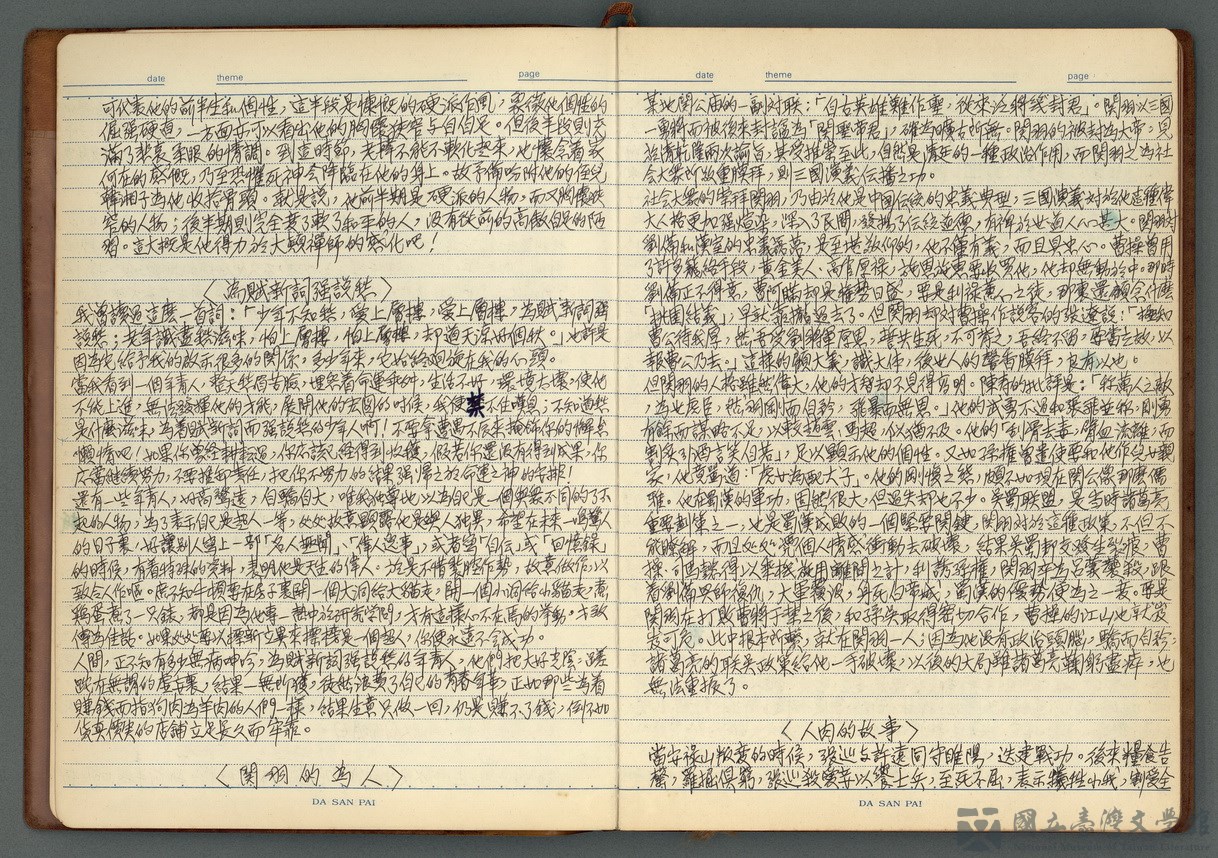 date theme page
可代表他的前半生和個性,這半段是慷慨的硬派作風,象徵他個性的
倔强硬直,一方面亦可以看出他的胸懷狹窄与自怕是。但後半段則充
滿了悲哀軍眼的情調。到這時節,老韓不能不軟化起來,也懷念着家
何在的感慨,乃至恐惟死神会降臨在他的身上。故予備吩咐他的侄兒
韓湘子為他收拾骨頭。就是說,他前半期是硬派的人物,而又胸懷狹
窄的人物;後半期則完全变了軟了和平的人,沒有從前的高傲自是的陋
習。這大概是他得力於大顛禪師的感化吧!
〈為賦新詞强說愁〉
我曾讀過這麼一首詞:「少年不知愁,愛上層樓,愛上層樓,為賦新詞强
說愁;老年識盡愁滋味,怕上層樓,怕上層樓,却道天涼好個秋。」也許是
因為它給予我的啟示很多的関係,多少年來,它始終廻旋在我的心頭。
當我看到一個年青人,整天愁眉苦臉,埋怨着命運乖舛,生活不好,環境太壞,使他
不能上進,無法發揮他的才能,展開他的宏圖的时候,我便禁不住嘆息:不知道愁
是什麼滋味,為着賦新詞而强說愁的少年人啊!不要拿曹遇不辰來掩飾你的懶與
懶惰吧!如果你曾經耕耘過,你应該已經得到收穫,假若你還沒有得到成果,你
应當继續努力,不要推卸責任,把你不努力的結果强歸之於命運之神的安排!
還有一些年青人,好高騖遠,自驕自大,唯我獨尊,以為自己是一個與衆不同的了不
起的人物,為了表示自己是超人一等,处处故意顕露他是與人独異,希望在未来一鳴驚人
的日子裏,好讓別人寫上一部「名人無聞」、「偉人逸事」,或者寫「自伝」或「回憶錄」
的时候,有着特殊的資料,表明他是天生的偉人。於是不惜裝腔作勢,故意做作,以
致令人作嘔。庶不知牛頓要在房子裏開一個大洞給大猫走,開一個小洞給小猫走;煮
鷄蛋煮了一只錶,都是因為他專一熱中於研究学問,才有這樣心不在焉的举動。才致
傳為佳話。如果处处要以標新立異來標榜是一個超人,你便永遠不会成功。
人間,正不知有多少無病呻吟,為賦新詞强說愁的年青人,他們把大好光陰,蹉
跎在無聊的虛嘆裏,結果一無所獲,徒然浪費了自己的青春年華,正如那些為着
賺錢而指狗肉為羊肉的人們一樣,結果生意只做一回,仍是賺不了錢,倒不如
貨真價實的店舖立足長久而牢靠。
〈関羽的為人〉
DA SAN PAI
date theme page
某地関公庙的一副对联:「自古英雄難作聖,從來名將幾封君」。関羽以三國
一勇將而被後來封謚為「関聖帝君」,確為曠古所無。関羽的被封為大帝,見
於清乾隆兩次諭旨,其受推崇至此,自然是清廷的一種政治作用,而関羽之為社
会大衆所敬重膜拜,則三國演義伝播之功。
社会上衆的崇拜関羽,乃由於他是中國伝統的忠義典型,三國演義对於他這種偉
大人格更加强煊染,深入了民間,發揚了伝統道德,有裨於世道人心甚大。関羽对
劉備和漢室的忠義薦薦,是至堪敬仰的,他不僅有義,而且具忠心。曹操曾用
了許多籠絡手段,黃金美人、高官厚祿,施恩施惠要收買他,他却無動於中。那時
劉備正不得意,曹阿瞞却是權勢日盛,要是利祿薰心之徒,那裏還顧念什麼
「桃園結義」,早就靠攏過去了。但関羽却对曹操作說客的張遼說:「極知
曹公待我厚,然吾受劉將軍厚恩,誓共生死,不可背之,吾終不留,要當立效,以
報曹公乃去。」這樣的顧大義,識大体,後世人的馨香膜拜,良有以也。
但関羽的人格雖然偉大,他的才智却不見得高明。陳寿的批評是:「称萬人之敵,
為世虎臣,然羽剛而自矜,飛暴而無恩。」他的武勇不過和張飛並称,剛勇
有餘而謀略不足,以較趙雲、馬超,似猶不及。他的「刮骨去毒,臂血流離,而
割炙引酒言笑自若」,足以顕示他的個性。又如孫權曾遣使要和他作兒女親
家,他竟罵道:「虎女為配犬子」。他的剛愎之態,頗不如現在関公像那麼儒
雅。他在蜀漢的軍功,固然很大,但過失却也不少。吳蜀联盟,是當時諸葛亮
重要創策之一,也是蜀漢成敗的一個堅要関鍵,関羽对於這種政策,不但不
能瞭解,而且处处憑個人情感衝動去破壞,結果吳蜀邦交發生裂痕,曹
操、司馬懿得以乘機敌用離間之計,利誘孫權,関羽卒為呂蒙襲殺,跟
着劉備興師復仇,大軍覆沒,身死白帝城,蜀漢的優勢便為之一衰。要是
関羽在打敗曹將于禁之後,和孫吳取得密切合作,曹操的江山也就岌
岌可危。此中根本所繫,就在関羽一人;因為他沒有政治頭腦,驕而自矜,
諸葛亮的联吳政策給他一手破壞,以後的大局雖諸葛亮鞠躬盡瘁,也
無法重振了。
〈人肉的故事〉
當安祿山叛變的时候,張巡与許遠同守睢陽,迭建戰功。後來糧食告
罄,羅掘俱窮,張巡殺愛妾以饗士兵,至死不屈,表示犧牲小我,劉愛全
DA SAN PAI
國立臺灣文學館
National Museum of Taiwan Literature